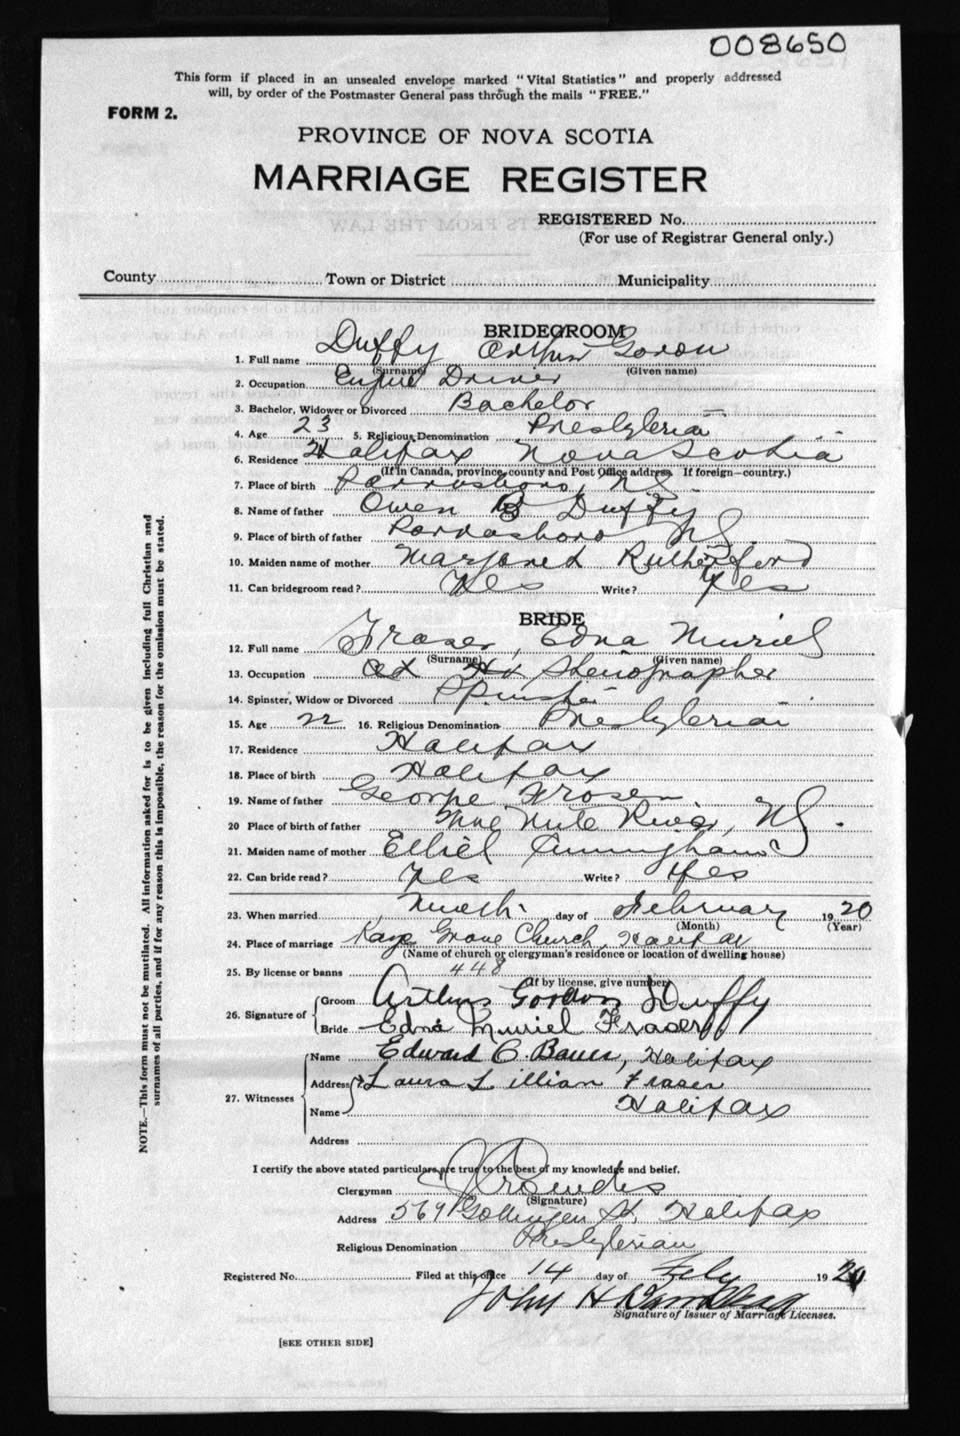 008650
This form if placed in an unsealed envelope marked "Vital Statistics" and properly addressed
will, by order of the Postmaster General pass through the mails "FREE."
FORM 2.
PROVINCE OF NOVA SCOTIA
MARRIAGE REGISTER
REGISTERED No.
(For use of Registrar General only.)
County Town or District Municipality
BRIDEGROOM
1. Full name Duffy Arthur Gordon
(Surname) (Given name)
2. Occupation Engine Driver
3. Bachelor, Widower or Divorced Bachelor
4. Age 23 5. Religious Denomination Presbyterian
6. Residence Halifax Nova Scotia
(If in Canada, province, county and Post Office address. If foreign—country.)
7. Place of birth Parrsboro, NS.
8. Name of father Owen B Duffy
9. Place of birth of father Parrsboro NS.
10. Maiden name of mother Margaret Rutherford
11. Can bridegroom read? Yes Write? Yes
BRIDE
12. Full name Fraser, Edna Muriel
(Surname) (Given name)
13. Occupation Stenographer
14. Spinster, Widow or Divorced Spinster
15. Age 22 16. Religious Denomination Presbyterian
17. Residence Halifax
18. Place of birth Halifax
19. Name of father George Fraser
20 Place of birth of father Nine Mile River, NS.
21. Maiden name of mother Ethel Cunningham
22. Can bride read? Yes Write? Yes
23. When married Ninth day of February 1920
(Month) (Year)
24. Place of marriage Kaye Grove Church, Halifax
(Name of church or clergyman's residence or location of dwelling house)
25. By license or banns 448
(If by license, give number)
26. Signature of Groom Arthur Gordon Duffy
Bride Edna Muriel Fraser
27. Witnesses Name Edward C. Bauer, Halifax
Address Laura Lillian Fraser
Name Halifax
Address
I certify the above stated particulars are true to the best of my knowledge and belief.
Clergyman
(Signature)
Address 569 Gottingen St. Halifax
Religious Denomination Presbyterian
Registered No. Filed at this office 14 day of Feby 1920
John H
Signature of Issuer of Marriage Licenses.
[SEE OTHER SIDE]
NOTE.—This form must not be mutilated. All information asked for is to be given including full Christian and
surnames of all parties, and if for any reason this is impossible, the reason for the omission must be stated.